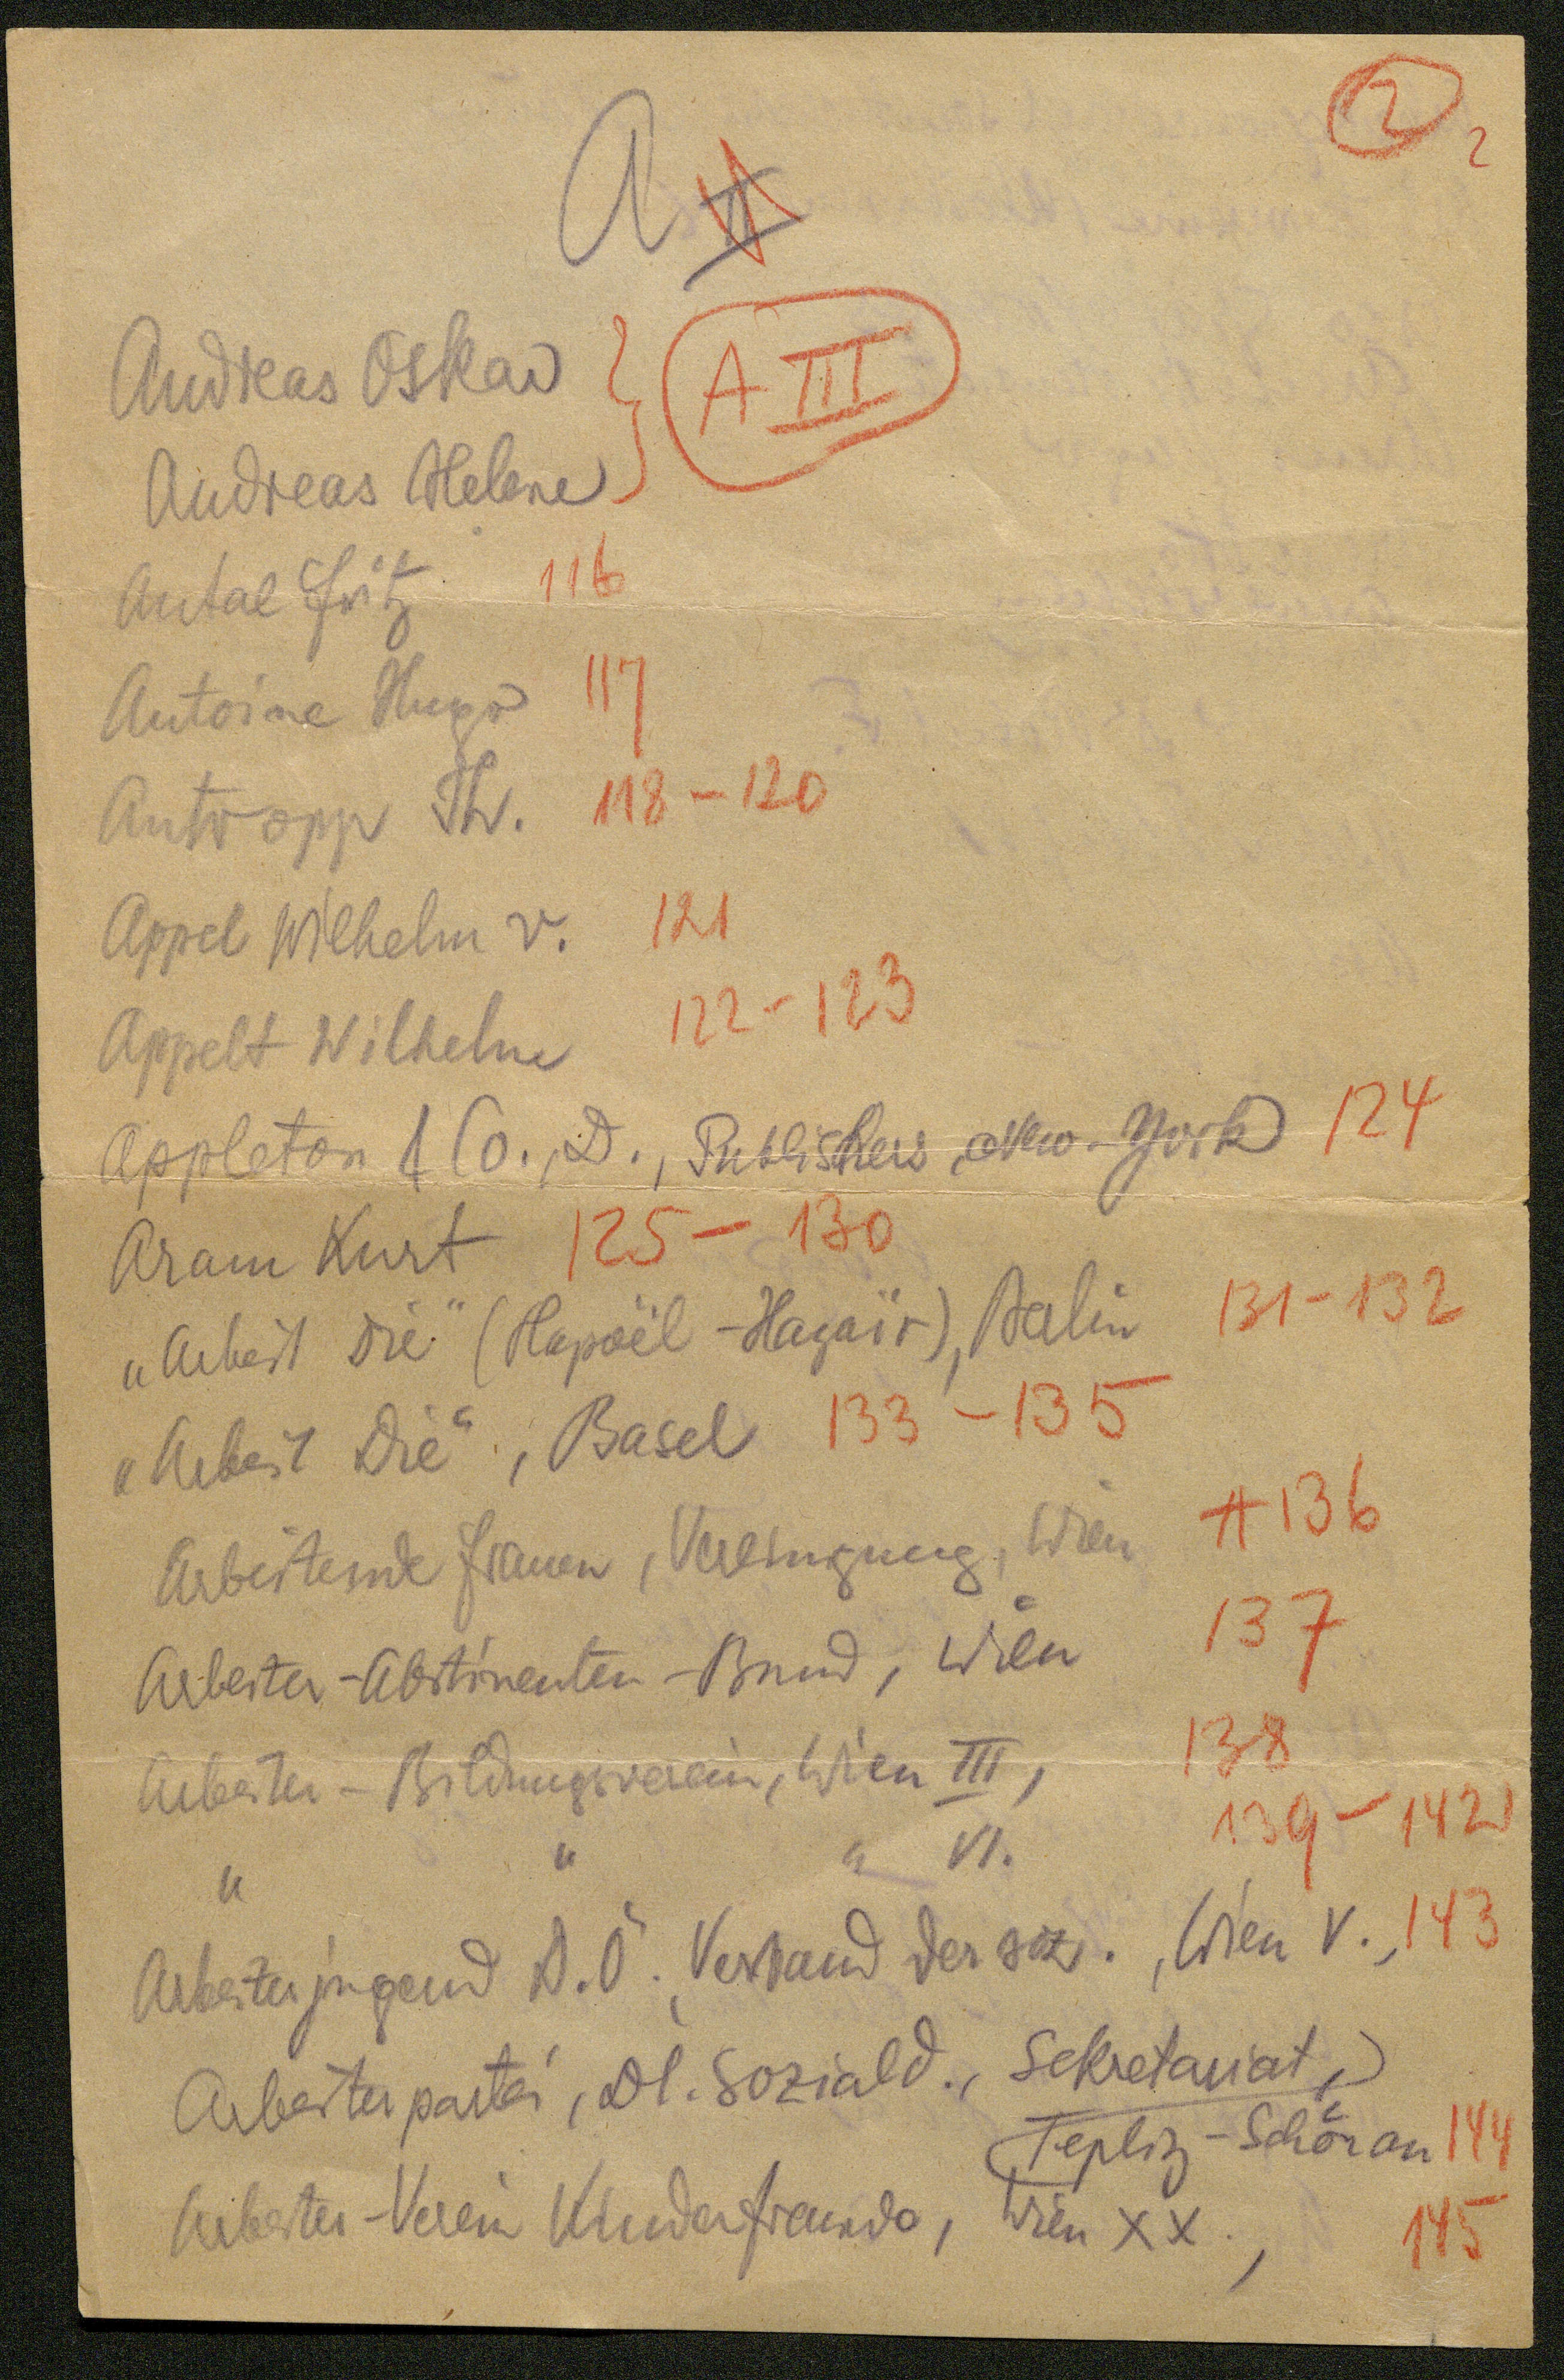 2 2
A II
Andreas Oskar
A III
Andreas Helene
Antal Fritz 116
Antoine Hugo 117
Antropp Th. 118-120
Appel Wilhelm v. 121
Appelt Wilhelm 122-123
Appleton & Co., D., Publishers, New-York 124
Aram Kurt 125-130
„Arbeit Die" (Hapoël-Hazaïr), Berlin 131-132
„Arbeit Die", Basel 133-135
Arbeitende Frauen, Vereinigung, Wien 136
Arbeiter-Abstinenten-Bund, Wien 137
Arbeiter-Bildungsverein, Wien III, 138
" " " VI. 139-142
Arbeiterjugend D.Ö., Verband der soz., Wien V., 143
Arbeiterpartei, Dt. Soziald., Sekretariat,
Tepliz-Schönau 144
Arbeiter-Verein Kinderfreunde, Wien XX., 145